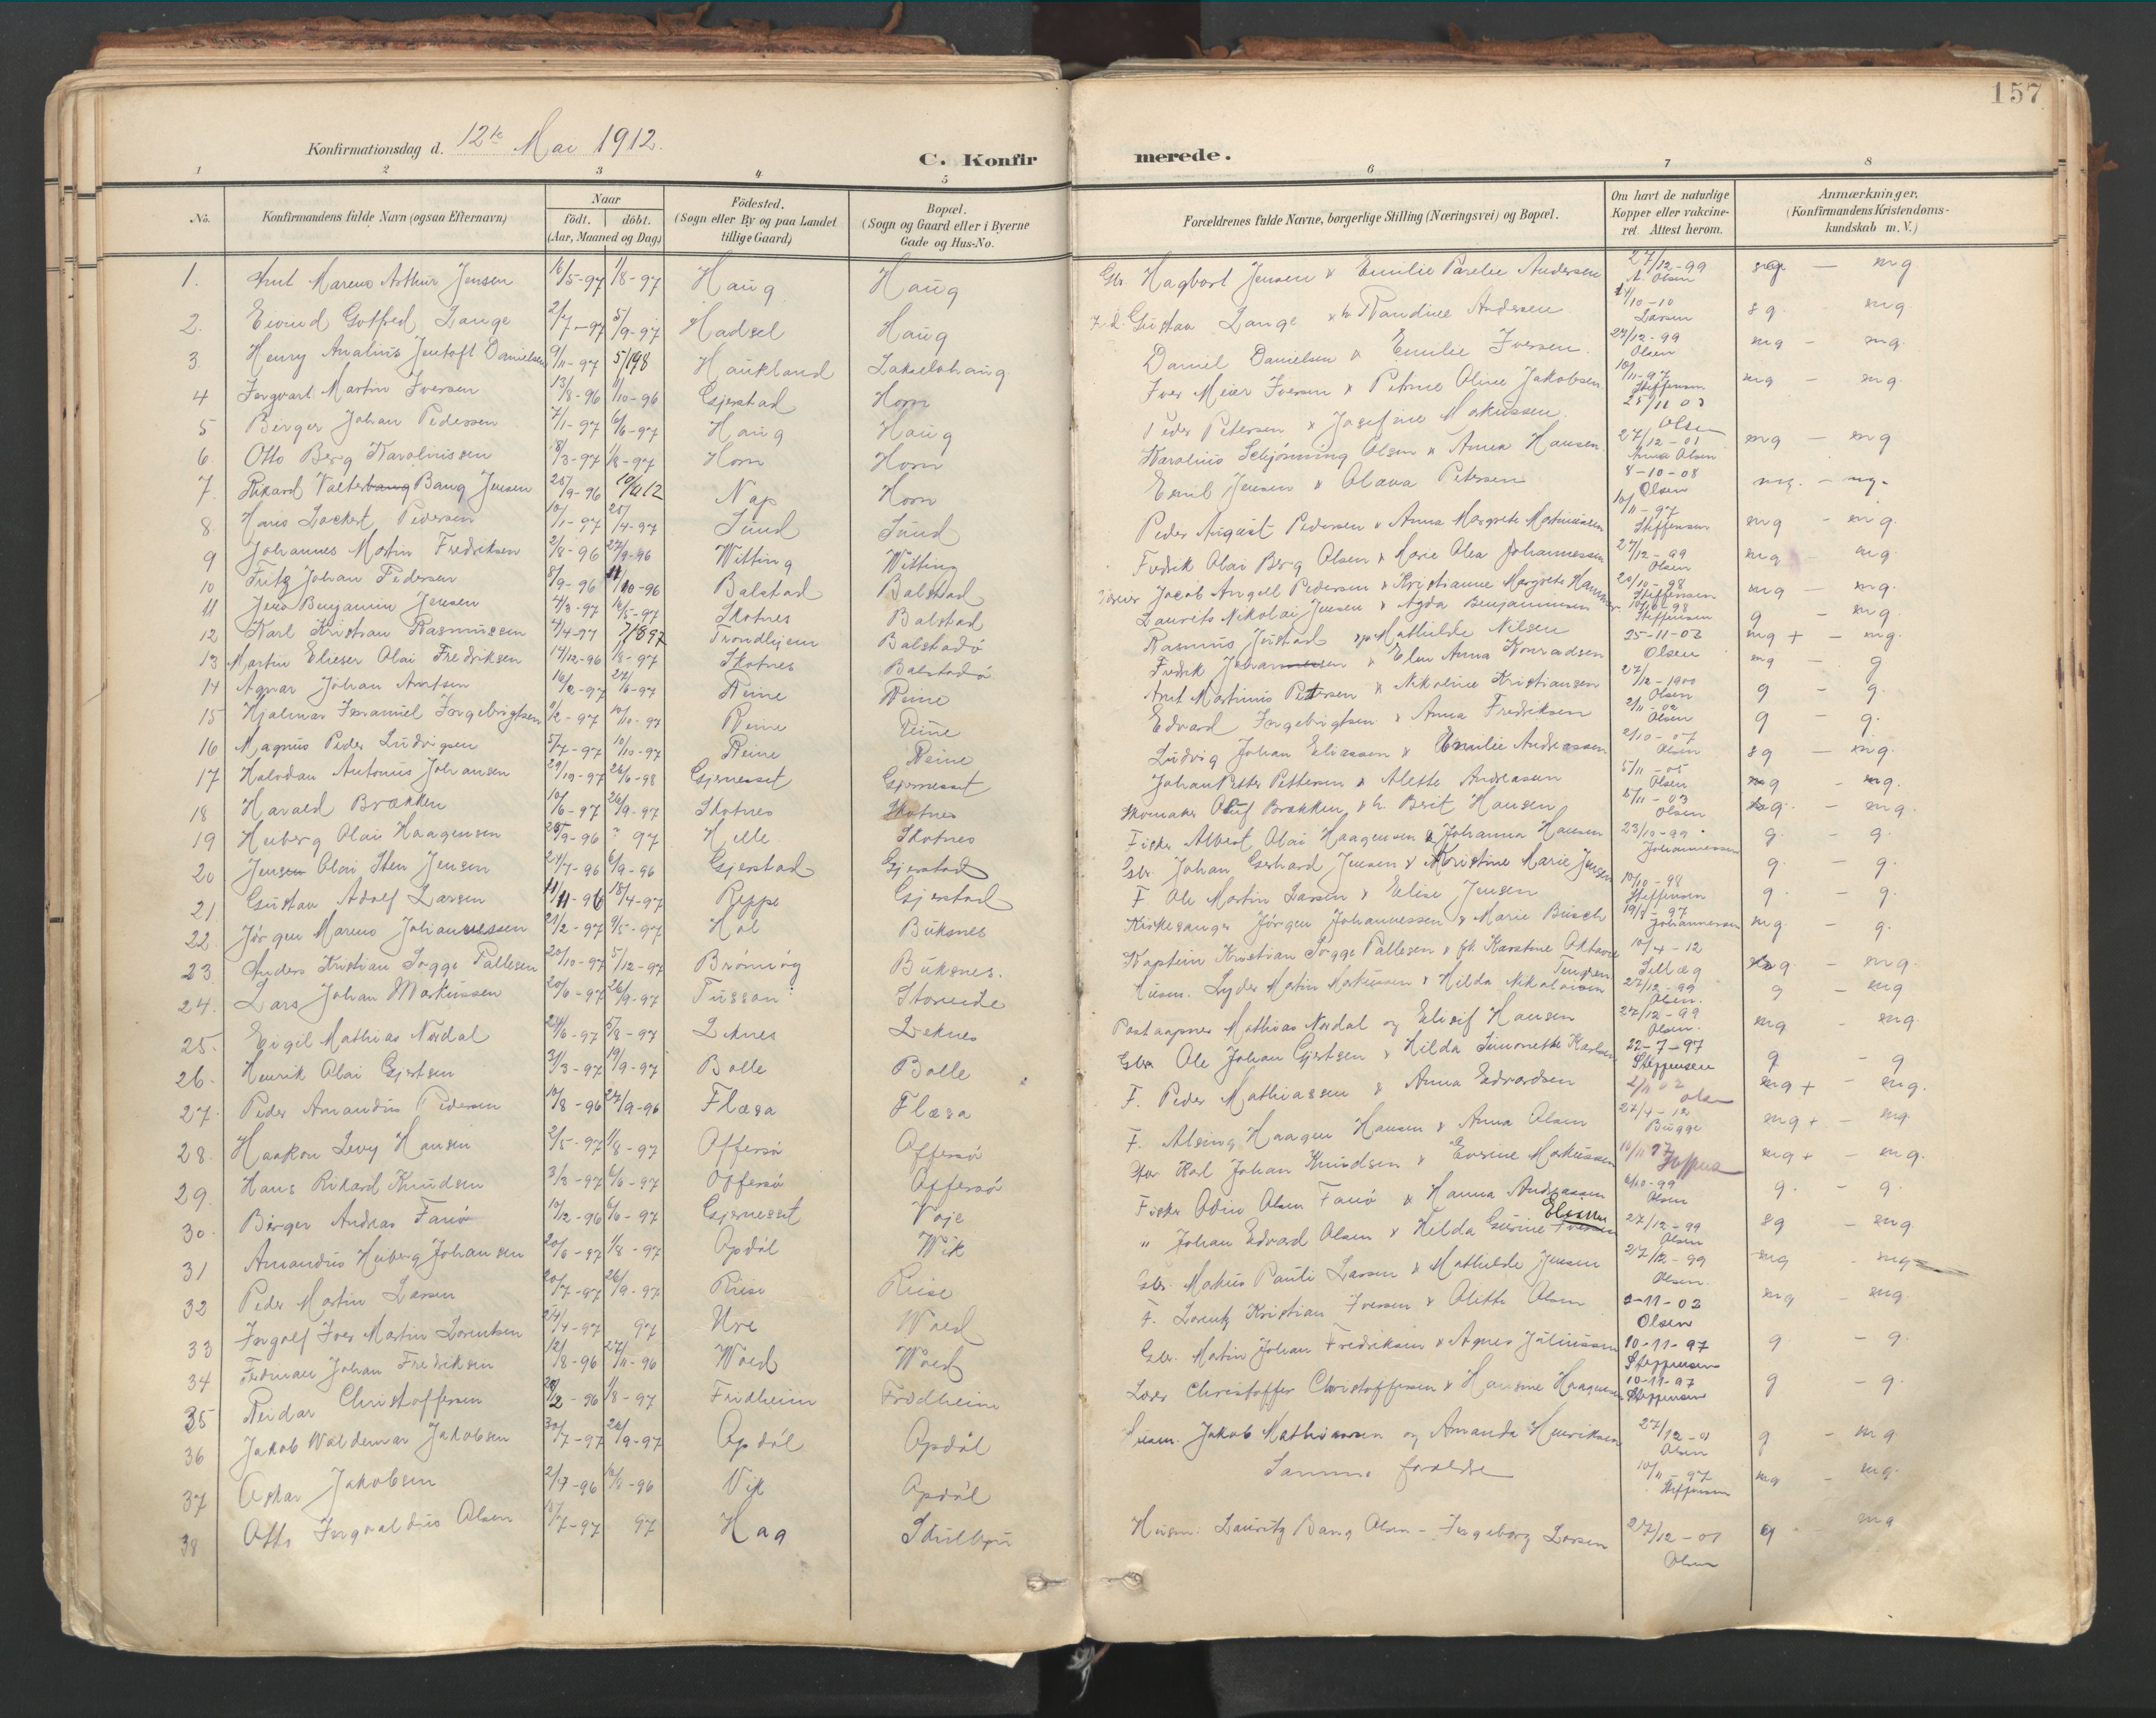 157
Konfirmationsdag d. 12te Mai 1912.
C. Konfirmerede.
1 2 3 4 5 6 7 8
No. Konfirmandens fulde Navn (ogsaa Efternavn) Naar födt. döbt. (Aar, Maaned og Dag) Födested. (Sogn eller By og paa Landet tillige Gaard) Bopæl. (Sogn og Gaard eller i Byerne Gade og Hus-No. Forældrenes fulde Navne, borgerlige Stilling (Næringsvei) og Bopæl. Om havt de naturlige Kopper eller vakcineret. Attest herom. Anmærkninger. (Konfirmandens Kristendomskundskab m. V.)
1. Arnt Mareno Arthur Jensen 16/5-97 1/8-97 Haug Haug Gbr Hagbart Jensen & Emilie Parelie Andersen 27/12-99 A. Olsen mg
2. Eivind Gotfred Lange 2/7-97 5/9-97 Hadsel Haug Gustav Lange Nandine Andersen 14/10-10 Larsen sg mg
3. Henry Analius Jentoft Danielsen 9/11-97 5/198 Haukland Lakselvhaug Daniel Danielsen & Emilie Iversen 27/12-99 Olsen mg - mg.
4 Ingvart Martin Iversen 13/8-96 1/10-96 Gjerstad Horn Iver Meier Iversen & Petrine Oline Jakobsen 10/11-97 Steffensen mg - mg.
5 Birger Johan Pedersen 7/1-97 6/6-97 Haug Haug Peder Petersen & Josefine Markussen 25/11 03 Olsen
6. Otto Berg Karoliussen 18/3-97 1/8-97 Horn Horn Karolius Schjönning Olsen & Anna Hansen 27/12-01 Anna Olsen mg - mg
7. Rikard Valter Bang Jensen 25/9-96 Nap Horn Emil Jensen & Olava Petersen 8-10-08 Olsen mg. - mg.
8. Hans Lockert Pedersen 10/1-97 20/4-97 Sund Sund Peder August Pedersen & Anna Margrete Martinussen 10/11-97 Steffensen mg - mg.
9 Johannes Martin Fredriksen 2/8-96 27/9-96 Witting Witting Fredrik Olai Berg Olsen & Marie Olea Johannessen 27/12-99 Olsen mg - mg.
10 Fritz Johan Pedersen 8/9-96 11/10-96 Balstad Balstad Jacob Angell Pedersen & Kristianne Margrete Hammer 20/10-98 Steffensen mg - mg.
11 Jens Benjamin Jensen 4/3-97 16/5-97 Skotnes Balstad Laurits Nikolai Jensen & Agda Benjaminsen 10/10-98 Steffensen g - mg.
12 Karl Kristian Rasmussen 4/4-97 7/897 Trondhjem Balstadö Rasmus Justad Mathilde Nilsen 25-11-03 Olsen mg + - mg.
13 Martin Elieser Olai Fredriksen 14/12-96 18-97 Skotnes Balstadö Fredrik Johannessen & Elen Anna Konradsen mg - g
14 Agnar Johan Arntsen 16/2-97 27/6-97 Reine Reine Arnt Martinus Petersen & Nikoline Kristiansen 27/12-1900 Olsen g - g.
15 Hjalmar Immanuel Ingebrigtsen 10/10-97 Reine Reine Edvard Ingebrigtsen & Anna Fredriksen 2/11-02 Olsen g - g.
16 Magnus Peder Ludvigsen 5/7-97 10/10-97 Reine Reine Ludvig Johan Eliassen & Emilie Andreassen 2/10-07 Olsen sg - mg.
17 Halvdan Antonius Johansen 29/10-97 26/6-98 Gjernesset Gjernesset Johan Petter Pettersen & Alette Andreasen 5/11-05 Olsen mg - mg.
18 Harald Brækken 10/6-97 26/9-97 Skotnes Skotnes Skomaker Oluf Brækken & h. Berit Hansen 5/11-03 Olsen mg. - mg.
19 Heiberg Olai Haagensen 28/9-96 ? 97 Helle Skotnes Fisker Albert Olai Haagensen & Johanna Hansen 23/10-99 Johannessen g. - g.
20 Jens Olai Sten Jensen 24/7-96 6/9-96 Gjerstad Gjerstad Gbr. Johan Gerhard Jensen & Kristine Marie Jensen g. - g.
21 Gustav Adolf Larsen 11/11-96 18/4-97 Reppe Gjerstad F Ole Martin Larsen & Elise Jensen 10/10-98 Steffensen g. - g.
22. Jörgen Mareno Johannessen 21/2-97 9/5-97 Hol Buksnes Kirkesanger Jörgen Johannessen & Marie Busch 19/8-97 Johannessen mg. - g.
23. Anders Kristian Sogge Pallesen 20/10-97 5/12-97 Brönnög Buksnes. Kaptein Kristian Sogge Pallesen & fh. Karstine Oktavie 10/4-12 Selleg mg - mg.
24. Lars Johan Markussen 20/6-97 26/9-97 Tussan Storeide Husm. Lyder Martin Markussen & Hilda Nikolaisen 27/12-99 Olsen. g - mg
25. Eigil Mathias Nerdal 24/6-97 5/8-97 Leknes Leknes Postaapner Mathias Nerdal og Elisif Hansen 27/12-99 Olsen. mg - mg.
26. Henrik Olai Gjertsen 31/3-97 19/9-97 Bolle Bolle Gbr Ole Johan Gjertsen & Hilda Simonette Karlsen 22-7-97 Steffensen g - g
27. Peder Amandus Pedersen 10/8-96 27/9-96 Flæsa Flæsa F. Peder Mathiassen & Anna Edvardsen 2/11 02 Olsen mg + - mg.
28. Haakon Levy Hansen 2/5-97 1/8-97 Offersö Offersö F. Alsing Haagen Hansen & Anna Olsen 27/4-12 Bugge mg + - mg.
29. Hans Rikard Knudsen 31/3-97 6/6-97 Offersö Offersö Karl Johan Knudsen & Evrine Markussen 10/11 97 mg + - mg.
30. Birger Andreas Fanö 10/12-96 6/6-97 Gjernesset Voje Fisker Odin Olsen Fanö & Hanna Andreassen 6/10-99 Olsen g. - g.
31 Amandus Heiberg Johansen 20/6-97 1/8-97 Opdöl Wik " Johan Edvard Olsen & Hilda Gurine 27/12-99 Olsen sg - mg.
32 Peder Martin Larsen 20/7-97 26/9-97 Riise Riise Gbr. Markus Pauli Larsen & Mathilde Jensen 27/12-99 Olsen. mg - mg
33 Ingolf Iver Martin Lorentsen 24/4-97 97 Ure Wold F. Lorentz Kristian Iversen & Olette Olsen 2-11-03 Olsen mg - mg.
34 Ferdinan Johan Fredriksen 12/8-96 27/11-96 Wold Wold Gbr. Martin Johan Fredriksen & Agnes Juliussen 10-11-97 Steffensen g - g.
35 Reidar Christoffersen 1/8-97 Fridheim Fridheim Lærer Christoffer Christoffersen & Hansine Haagensen 10-11-97 Steffensen g - g.
36 Jakob Waldemar Jakobsen 30/7-97 26/9-97 Opdöl Opdöl Husm. Jakob Mathiassen og Amanda Henriksen 27/12-01 Olsen g - mg
37 Oskar Jakobsen Vik Opdöl Samme foreldre 10/11-97 Steffensen mg - mg.
38 Otto Ingvaldius Olsen 97 Hag Skulbru Husm. Lauritz Bang Olsen - Ingeborg Larsen 27/12-01 Olsen g - mg